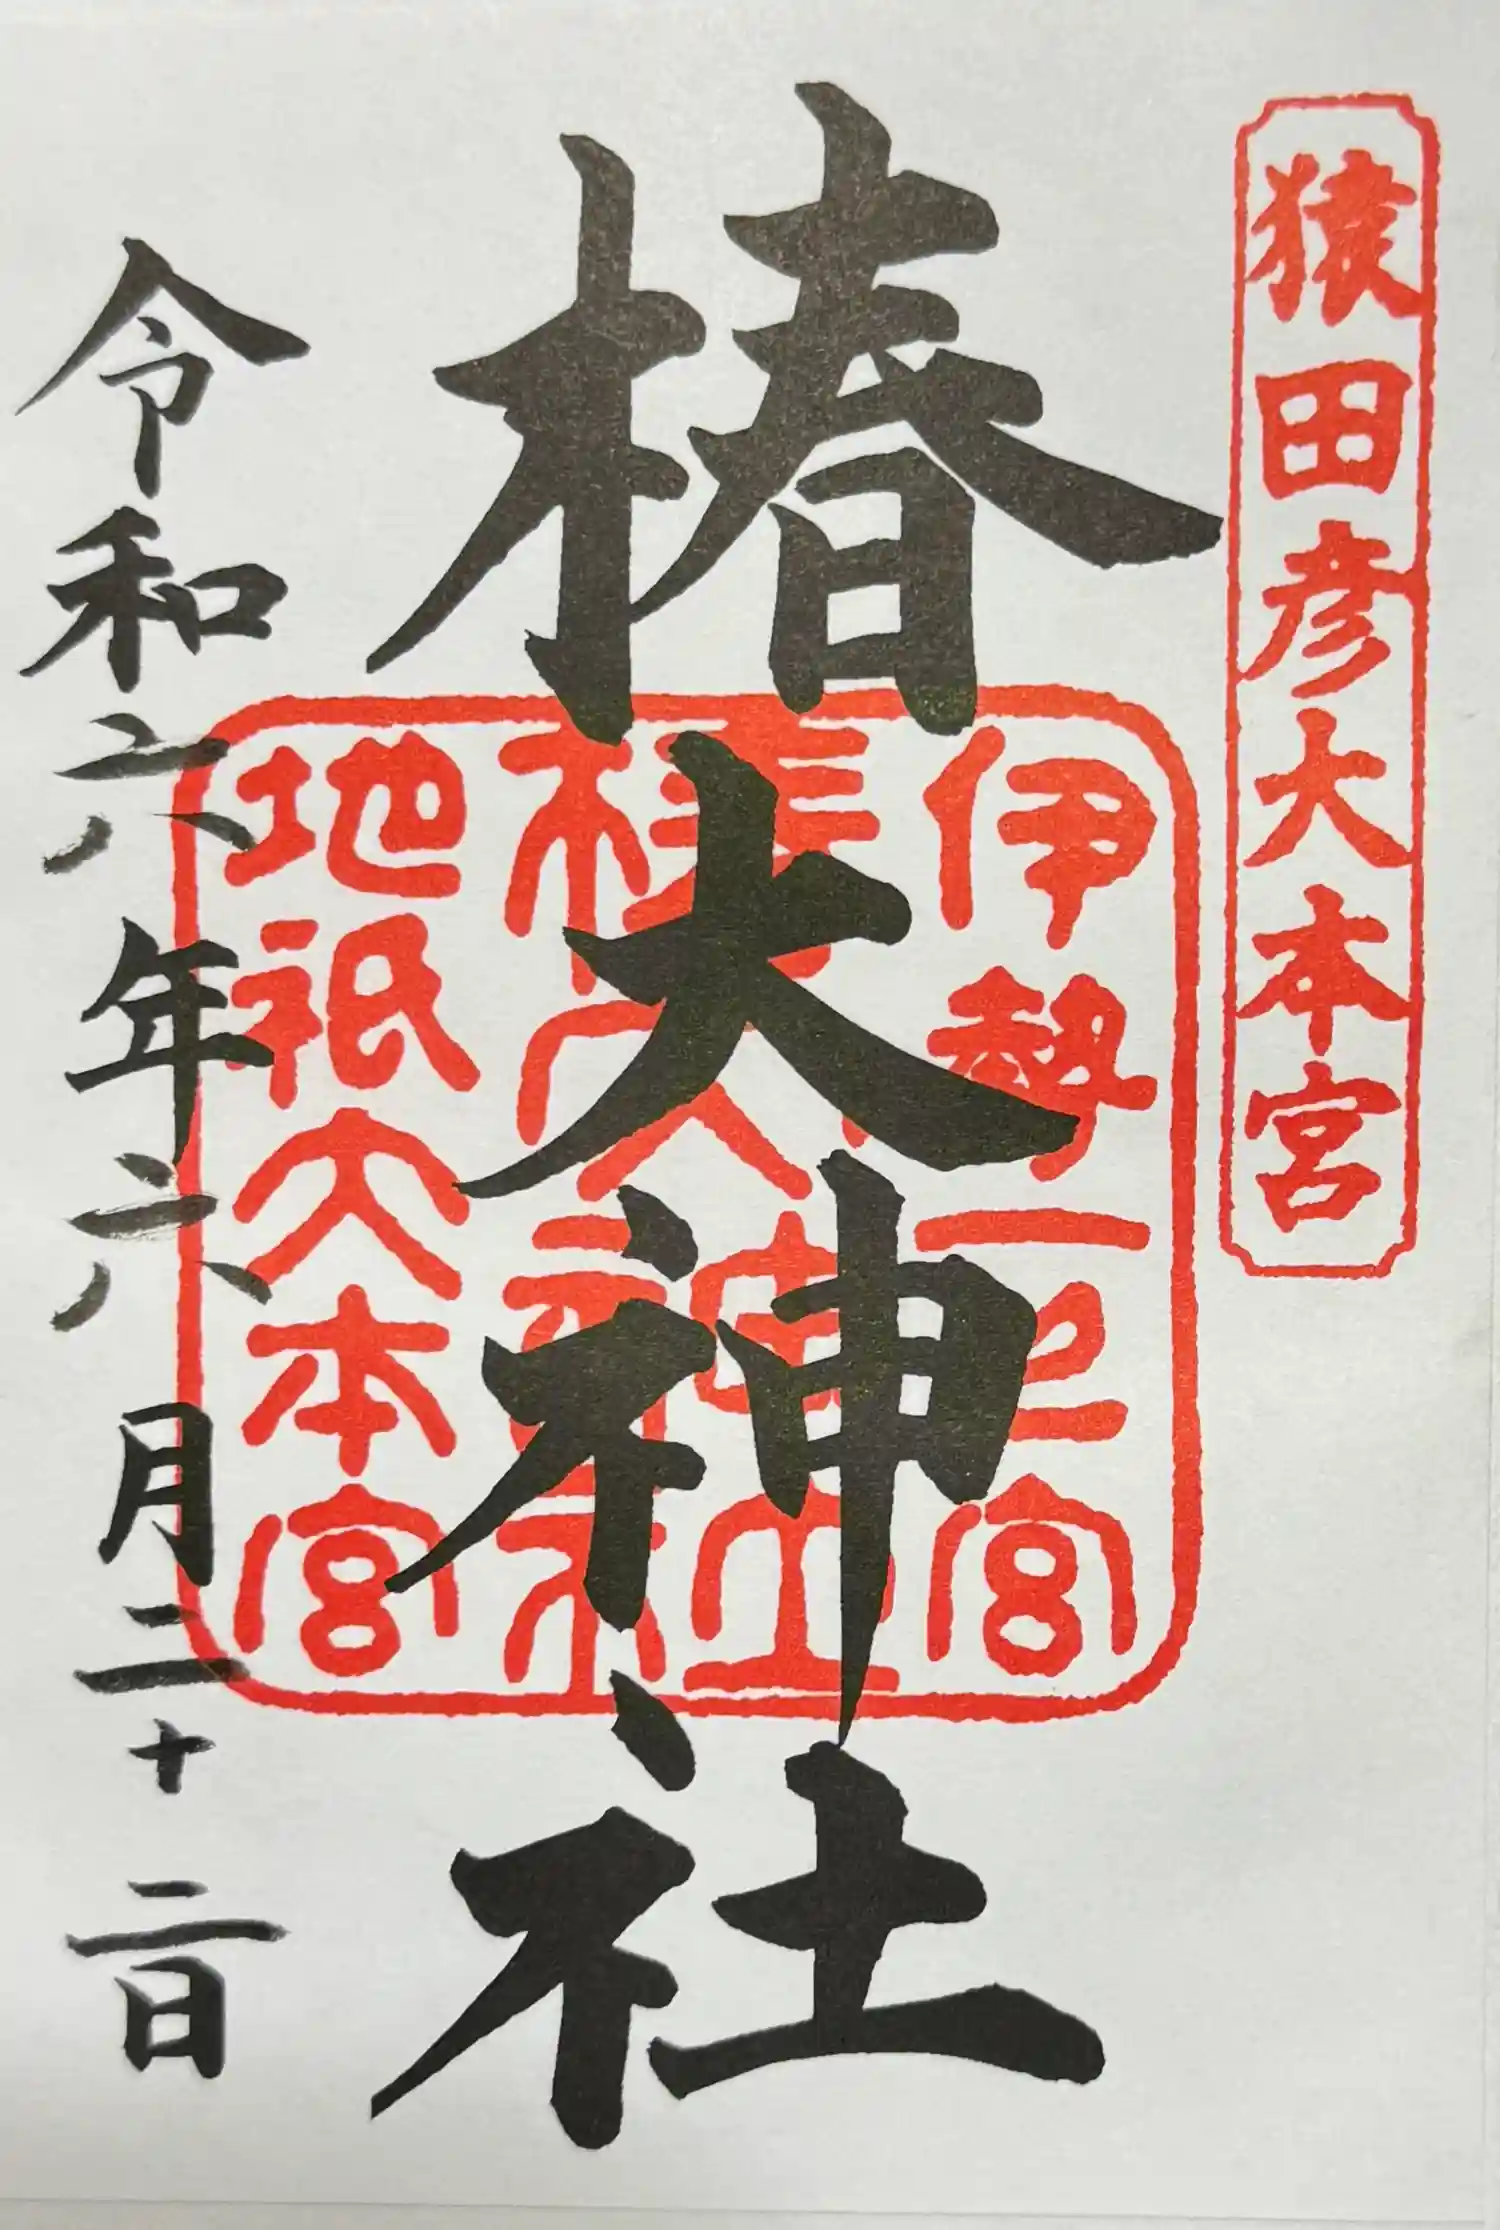 猿田彦大本宮
椿大神社
伊勢一之宮
椿大神社
地祇大本宮
令和六年六月二十二日